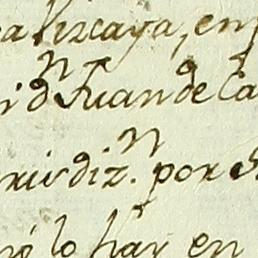 a Vizcaya, en
i dn Juan de Ca
ris dizn. por S
lo hay en